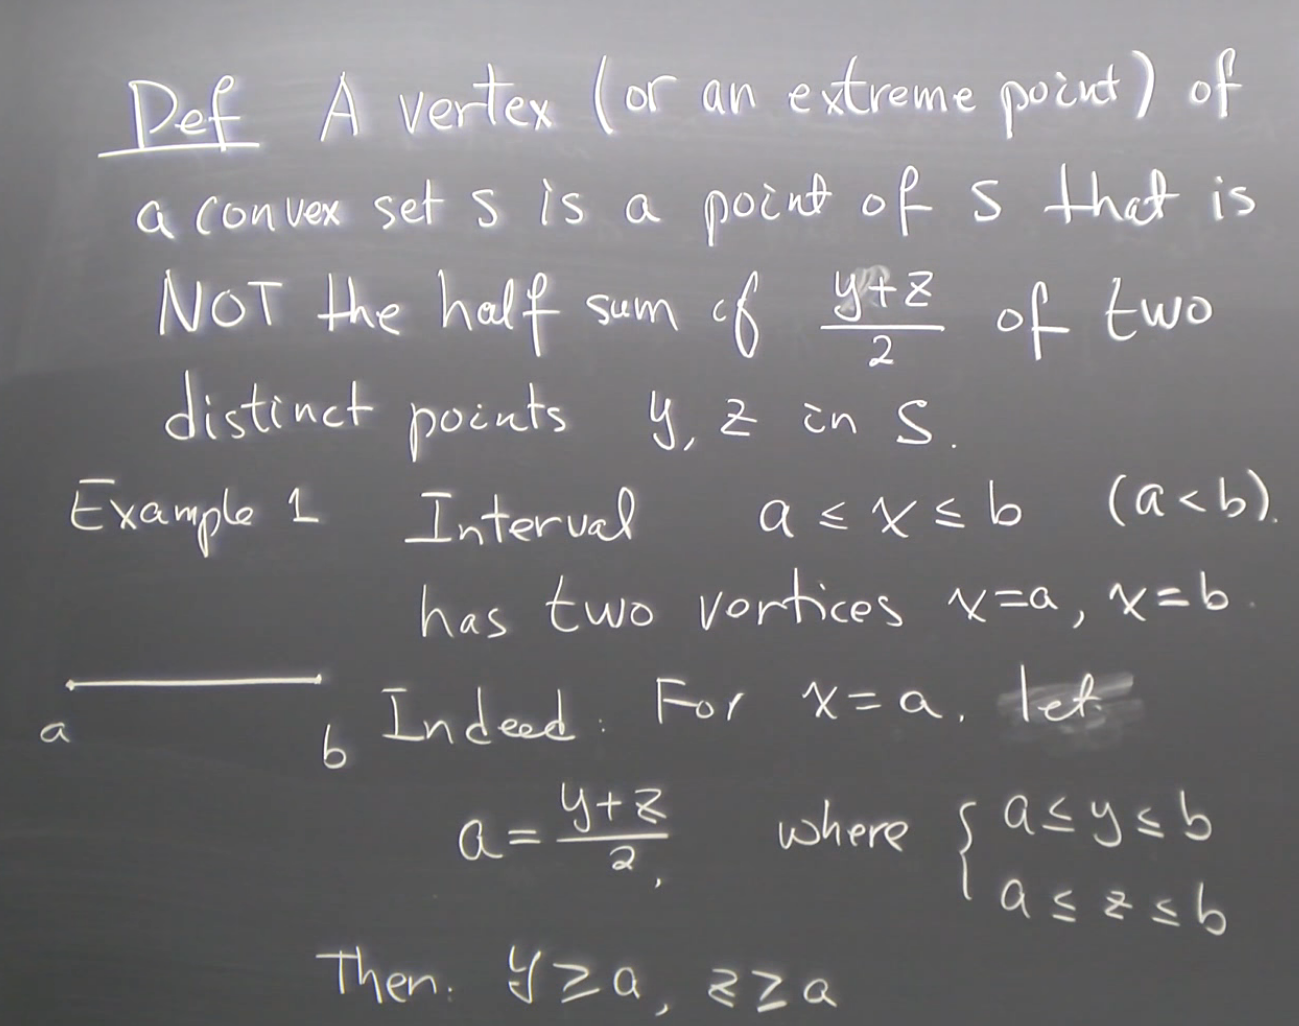 Def A vertex (or an extreme point) of
a convex set S is a point of S that is
NOT the half sum of \frac{y+z}{2} of two
distinct points y, z in S.
Example 1 Interval a ≤ x ≤ b (a < b).
has two vertices x=a, x=b.
a b
Indeed: For x=a. let
a = \frac{y+z}{2}, where { a ≤ y ≤ b
a ≤ z ≤ b
Then: y ≥ a, z ≥ a